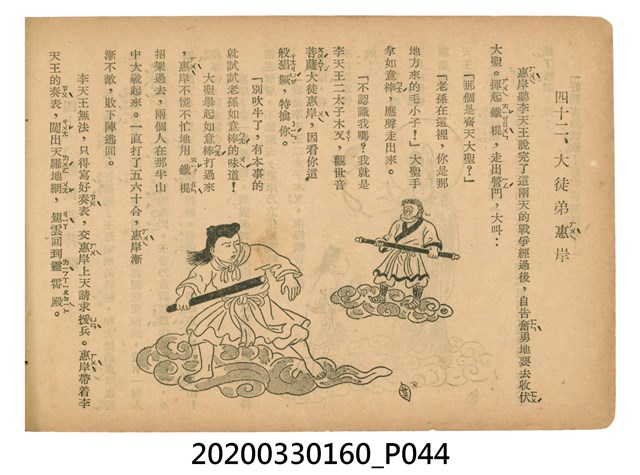 四十二、大徒弟惠岸
惠岸聽李天王說完了這兩天的戰爭經過後，自告奮勇地要去收伏
大聖。揮起鐵棍，走出營門，大叫：
「那個是齊天大聖？」
「老孫在這裡，你是那
地方來的毛小子！」大聖手
拿如意棒，應聲走出來。
「不認識我嗎？我就是
李天王二太子木叉，觀世音
菩薩大徒惠岸，因看你這
般猖獗，特擒你。
「別吹牛了，有本事的
就試試老孫如意棒的味道！
大聖舉起如意棒打過來
，惠岸不慌不忙地用鐵棍
招架過去，兩個人在那半山
中大戰起來。一直打了五六十合，惠岸漸
漸不敵，敗下陣逃回。
李天王無法，只得寫好奏表，交惠岸上天請求援兵。惠岸帶着李
天王的奏表，闖出天羅地網，駕雲回到靈霄殿。
20200330160_P044